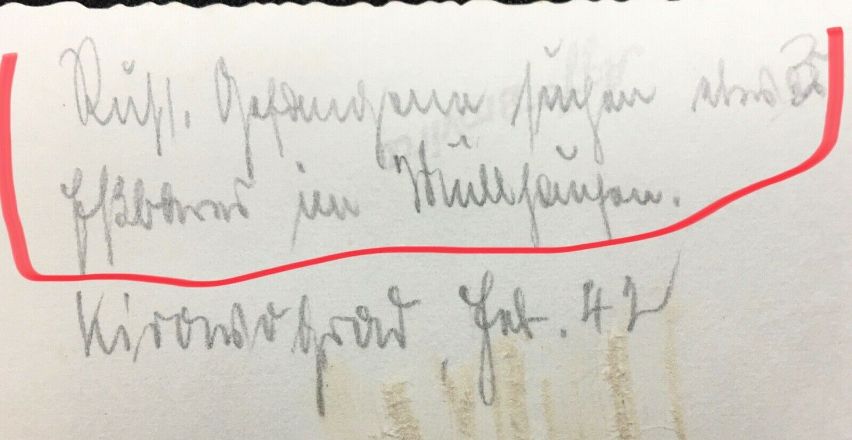 Russ. Gefangene suchen etwas
Eßbares im Müllhaufen.
Kirowograd, Feb. 42